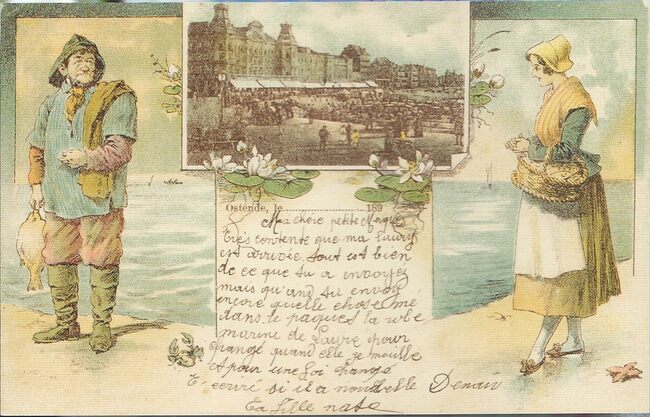 Ostende, le 189
Ma chere petite
très contente que ma
est arrivée. tout est bien
de ce que tu a envoyez
mais qu'and tu envoy
encore quelle chose me
dans le paques la robe
marine de Laure pour
changé quand elle se mouille
et pour une foi changé
écrire si il a nouvelle Demain
ta fille